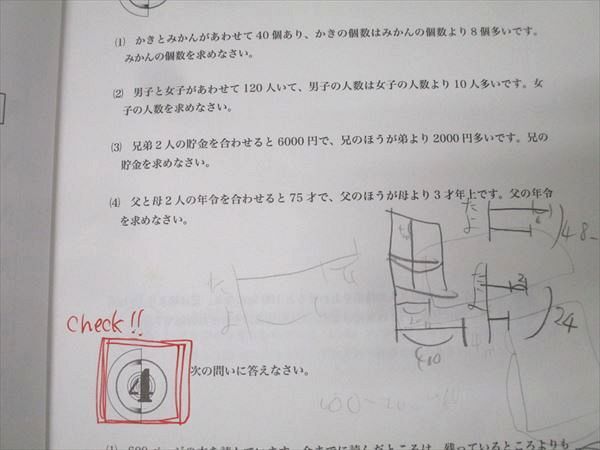 (1) かきとみかんがあわせて40個あり、かきの個数はみかんの個数より8個多いです。
みかんの個数を求めなさい。
(2) 男子と女子があわせて120人いて、男子の人数は女子の人数より10人多いです。女
子の人数を求めなさい。
(3) 兄弟2人の貯金を合わせると6000円で、兄のほうが弟より2000円多いです。兄の
貯金を求めなさい。
(4) 父と母2人の年令を合わせると75才で、父のほうが母より3才年上です。父の年令
を求めなさい。
48
24
check!!
4 次の問いに答えなさい。